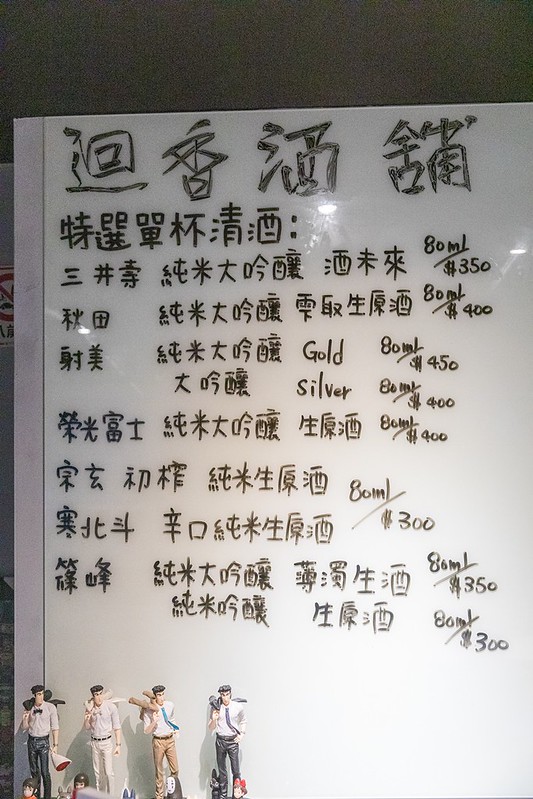 迴香酒舖
特選單杯清酒：
三井壽 純米大吟釀 酒未來 80ml/$350
秋田 純米大吟釀 雫取生原酒 80ml/$400
射美 純米大吟釀 Gold 80ml/$450
大吟釀 Silver 80ml/$400
榮光富士 純米大吟釀 生原酒 80ml/$400
宗玄 初榨 純米生原酒
80ml/$300
寒北斗 辛口純米生原酒
篠峰 純米大吟釀 薄濁生酒 80ml/$350
純米吟釀 生原酒 80ml/$300